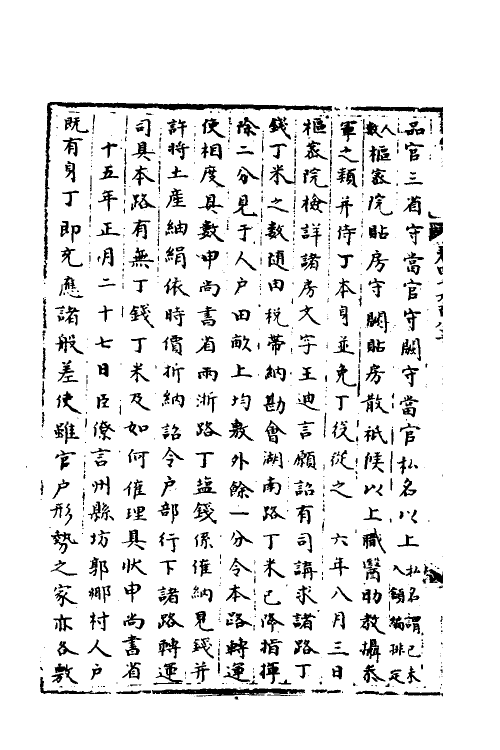 品官三省守當官守闕守當官私名以上私名謂已未入額編排定
人數樞密院貼房守闕貼房散祗候以上職醫助教攝參
軍之類并侍丁本身並免丁役從之　六年八月三日
樞密院檢詳諸房文字王迪言願詔有司講求諸路丁
錢丁米之數隨田稅帶納勘會湖南路丁米已降指揮
除二分見于人戶田畝上均敷外餘一分令本路轉運
使相度具數申尚書省兩浙路丁鹽錢係催納見錢并
許將土產紬絹依時價折納詔令戶部行下諸路轉運
司具本路有無丁錢丁米及如何催理具狀申尚書省
十五年正月二十七日臣僚言州縣坊郭鄉村人戶
既有身丁即充應諸般差使雖官戶形勢之家亦各敷